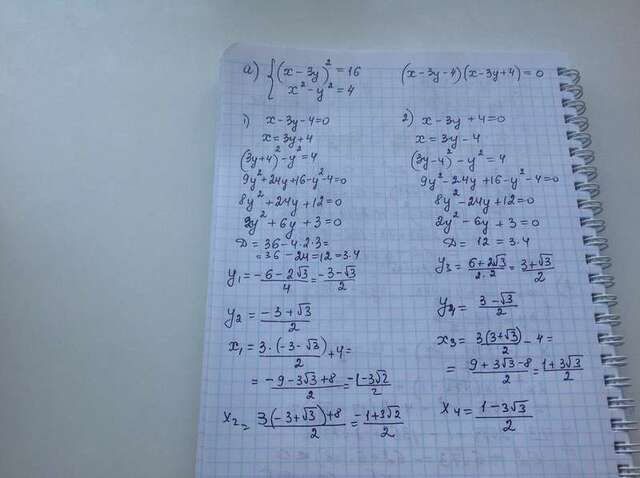 а) { (x - 3y)² = 16
x² - y² = 4
(x-3y-4)(x-3y+4) = 0
1) x-3y-4=0
x=3y+4
(3y+4)² - y² = 4
9y²+24y+16-y²-4=0
8y²+24y+12=0
2y²+6y+3=0
D = 36-4·2·3=
=36-24=12=3·4
y₁ = (-6-2√3)/4 = (-3-√3)/2
y₂ = (-3+√3)/2
x₁ = 3·(-3-√3)/2 + 4 =
= (-9-3√3+8)/2 = (-1-3√2)/2
x₂ = (3(-3+√3)+8)/2 = (-1+3√2)/2
2) x-3y+4=0
x=3y-4
(3y-4)² - y² = 4
9y²-24y+16-y²-4=0
8y²-24y+12=0
2y²-6y+3=0
D = 12=3·4
y₃ = (6+2√3)/(2·2) = (3+√3)/2
y₄ = (3-√3)/2
x₃ = 3(3+√3)/2 - 4 =
= (9+3√3-8)/2 = (1+3√3)/2
x₄ = (1-3√3)/2